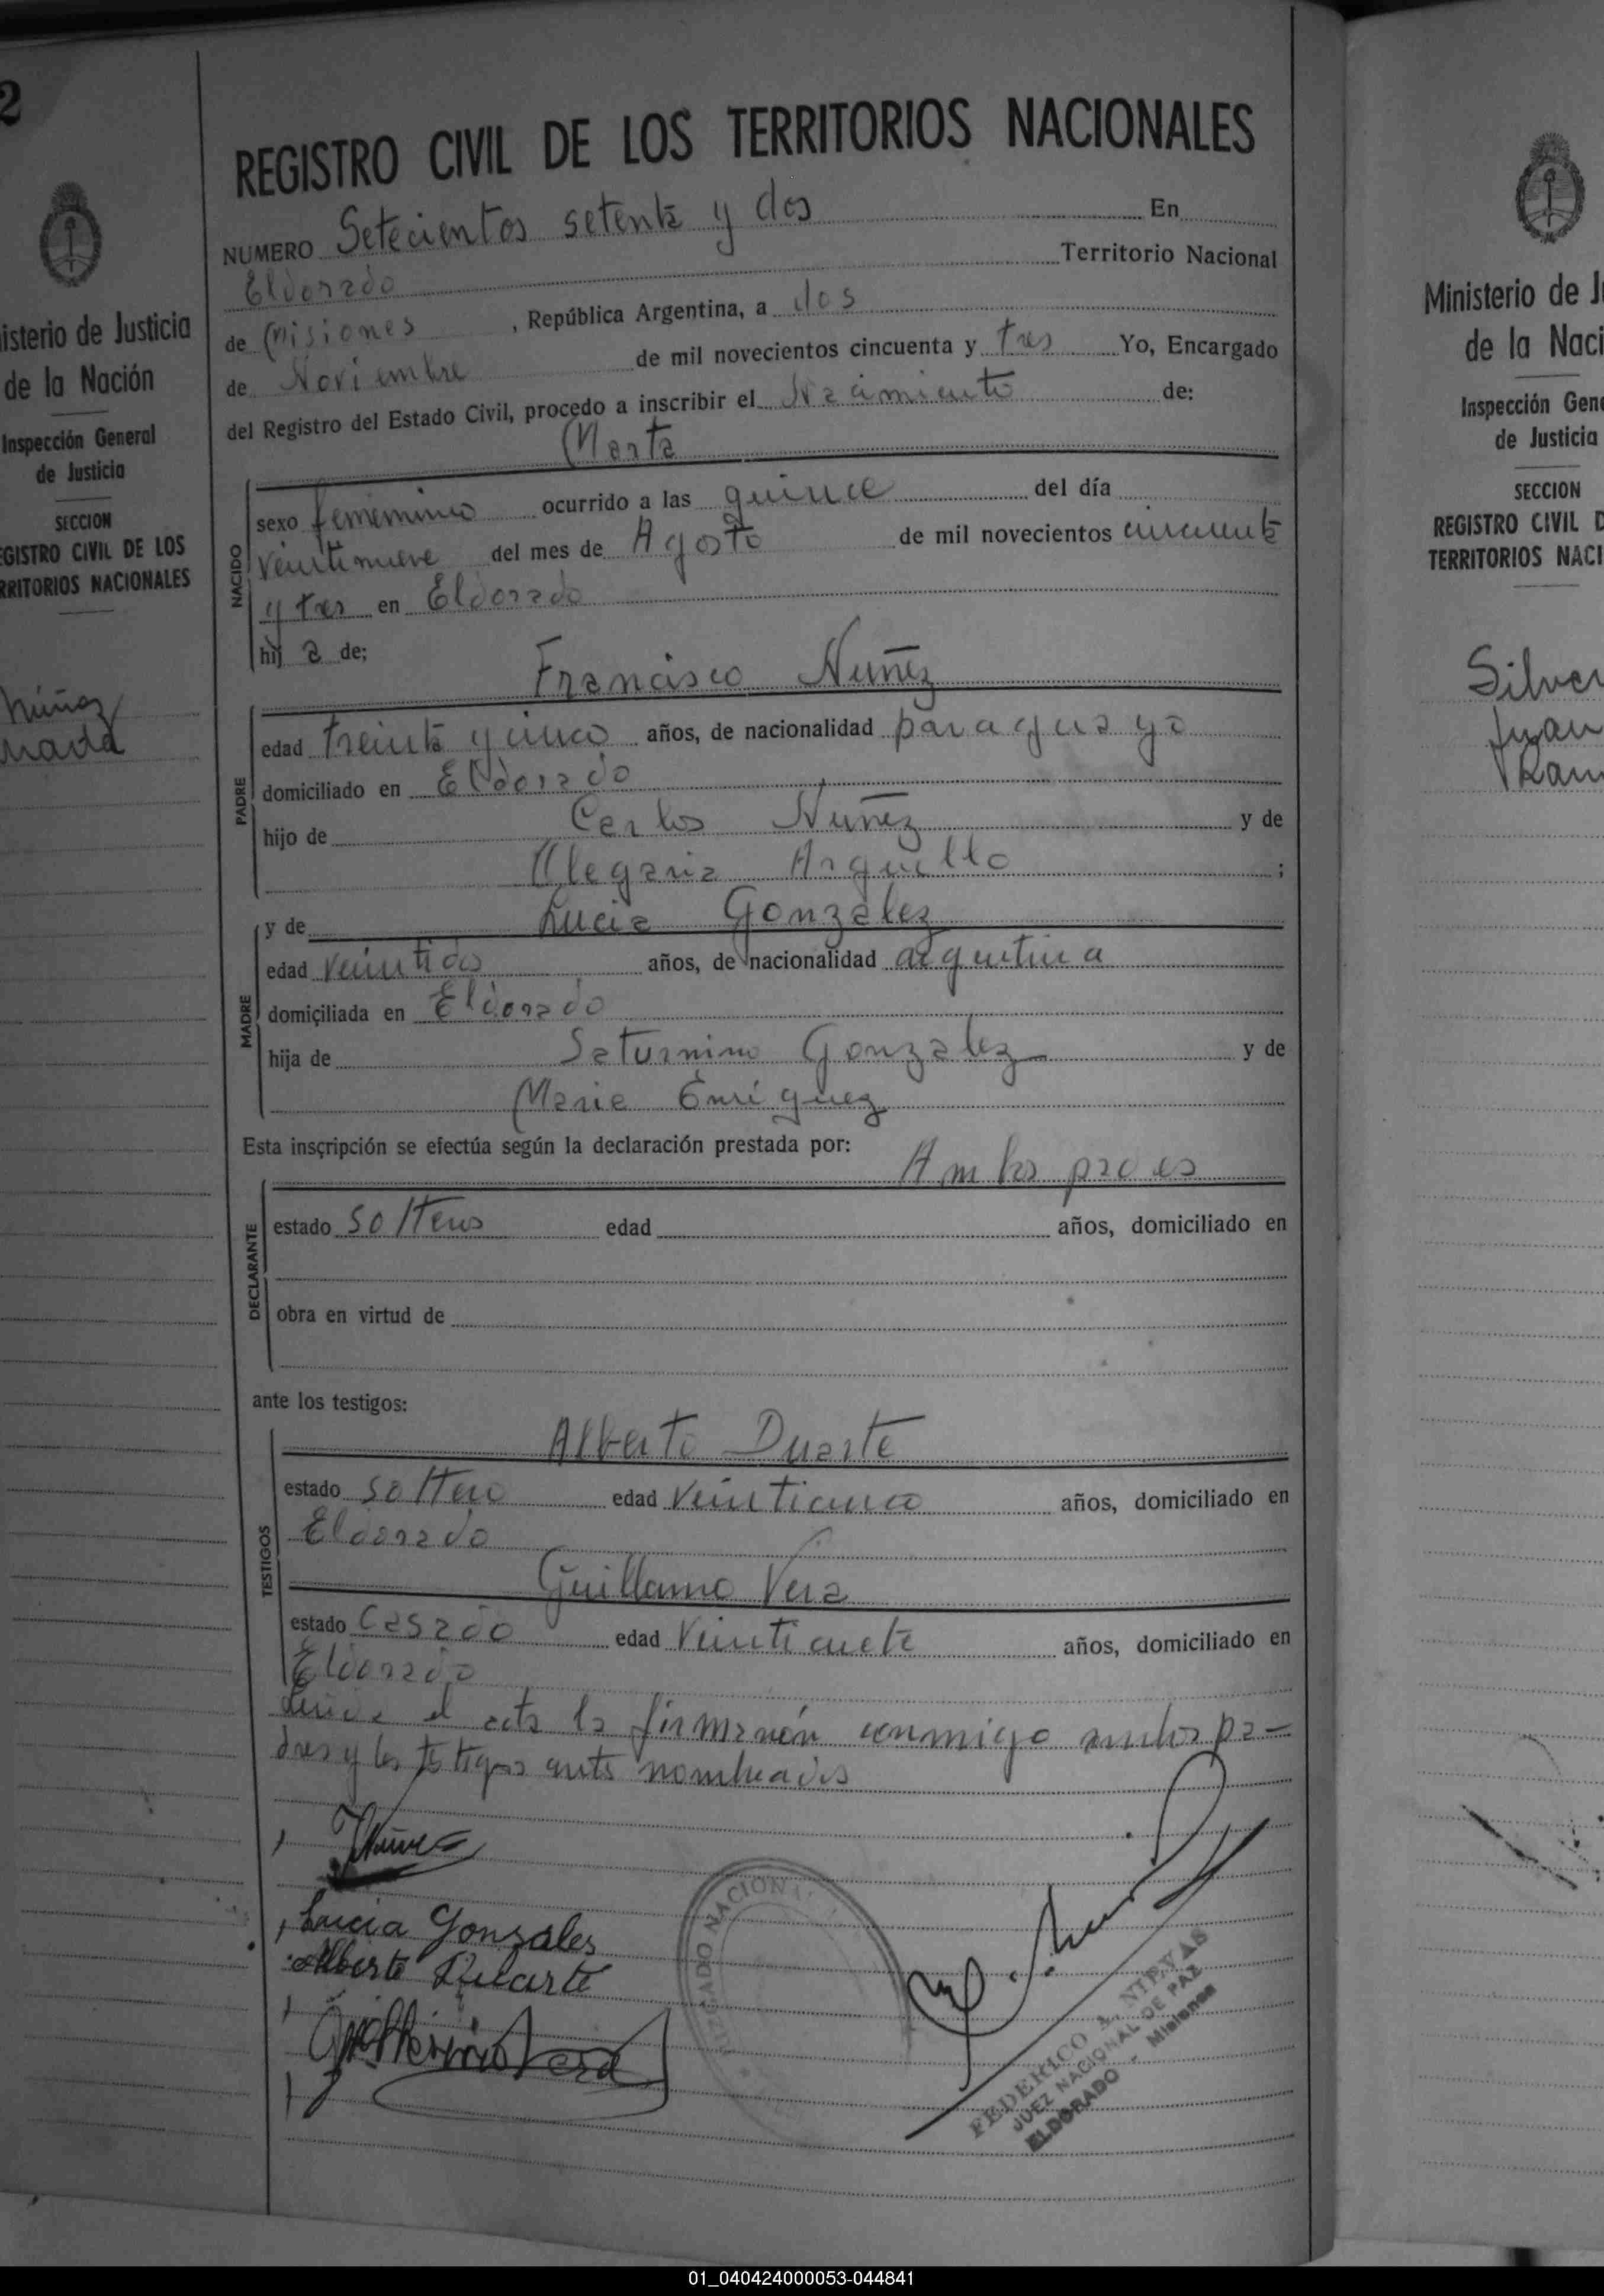 2
isterio de Justicia
de la Nación
Inspección General
de Justicia
SECCION
EGISTRO CIVIL DE LOS
RRITORIOS NACIONALES
Núñez
Marta
REGISTRO CIVIL DE LOS TERRITORIOS NACIONALES
NUMERO Setecientos setenta y dos En
Eldorado Territorio Nacional
de Misiones, República Argentina, a dos
de Noviembre de mil novecientos cincuenta y tres Yo, Encargado
del Registro del Estado Civil, procedo a inscribir el Nacimiento de:
Marta
NACIDO
sexo femenino ocurrido a las quince del día
veintinueve del mes de Agosto de mil novecientos cincuenta
y tres en Eldorado
hij a de;
Francisco Nuñez
PADRE
edad treinta y cinco años, de nacionalidad paraguayo
domiciliado en Eldorado
hijo de Carlos Nuñez y de
Olegaria Arguello ;
MADRE
y de Lucia Gonzalez
edad veintidos años, de nacionalidad argentina
domiciliada en Eldorado
hija de Saturnino Gonzalez y de
Maria Enriquez
Esta inscripción se efectúa según la declaración prestada por:
Ambos padres
DECLARANTE
estado solteros edad años, domiciliado en
obra en virtud de
ante los testigos:
TESTIGOS
Alberto Duarte
estado soltero edad veinticinco años, domiciliado en
Eldorado
Guillermo Vera
estado Casado edad veintisiete años, domiciliado en
Eldorado
el acta la firmaron conmigo ambos pa-
dres y los testigos antes nombrados
Nuñez
Lucia Gonzales
Alberto Duarte
Guillermo Vera
JUZGADO NACIONAL
FEDERICO A. NIEVAS
JUEZ NACIONAL DE PAZ
ELDORADO - Misiones
Ministerio de J
de la Naci
Inspección Gene
de Justicia
SECCION
REGISTRO CIVIL D
TERRITORIOS NACI
Silver
Juan
Ram
01_040424000053-044841